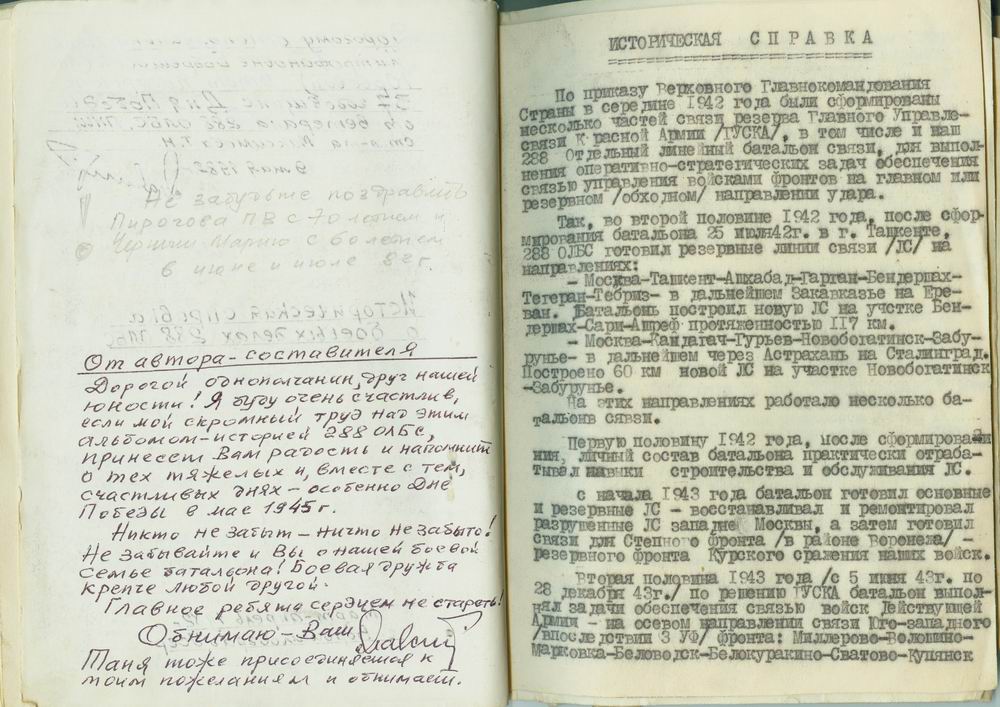 Не забудьте поздравить
Пирогова ПВ с 70 летием и
с 60 летием
в июне и июле 82г.
От автора-составителя
Дорогой однополчанин, друг нашей
юности! Я буду очень счастлив,
если мой скромный труд над этим
альбомом-историей 288 ОЛБС,
принесет Вам радость и напомнит
о тех тяжелых и, вместе с тем,
счастливых днях - особенно Дне
Победы в мае 1945г.
Никто не забыт - ничто не забыто!
Не забывайте и Вы о нашей боевой
семье батальона! Боевая дружба
крепче любой другой.
Главное ребята сердцем не стареть!
Обнимаю - Ваш
Таня тоже присоединяется к
моим пожеланиям и обнимает.
ИСТОРИЧЕСКАЯ СПРАВКА
По приказу Верховного Главнокомандования
Страны в середине 1942 года были сформированы
несколько частей связи резерва Главного Управле-
связи Красной Армии /ГУСКА/, в том числе и наш
288 Отдельный линейный батальон связи, для выпол-
нения оперативно-стратегических задач обеспечения
связью управления войсками фронтов на главном или
резервном /обходном/ направлении удара.
Так, во второй половине 1942 года, после сфор-
мирования батальона 25 июля42г. в г. Ташкенте,
288 ОЛБС готовил резервные линии связи /ЛС/ на
направлениях:
- Москва-Ташкент-Ашхабад-Гарган-Бендершах-
Тегеран-Тебриз- в дальнейшем Закавказье на Ере-
ван. Батальонь построил новую ЛС на учстке Бен-
дершах-Сари-Ашреф протяженностью 117 км.
- Москва-Кандагач-Гурьев-Новобогатинск-Забу-
рунье- в дальнейшем через Астрахань на Сталинград.
Построено 60 км новой ЛС на участке Новобогатинск
-Забурунье.
На этих направлениях работало несколько ба-
тальонв сявзи.
Первую половину 1942 года, после сформировани
ния, личный состав батальона практически отраба-
тывал навыки строительства и обслуживания ЛС.
с начала 1943 года батальон готовил основные
и резервные ЛС - восстанавливал и ремонтировал
разрушенные ЛС западнее Москвы, а затем готовил
связи для Степного фронта /в районе Воронежа/ -
резервного фронта Курского сражения наших войск.
Вторая половина 1943 года /с 5 июня 43г. по
28 декабря 43г./ по решению ГУСКА батальон выпол-
нял задачи обеспечения связью войск Действующей
Армии - на осевом направлении связи Юго-западного
/впоследствии 3 УФ/ фронта: Миллерово-Волошино-
Марковка-Беловодск-Белокуракино-Сватово-Купянск